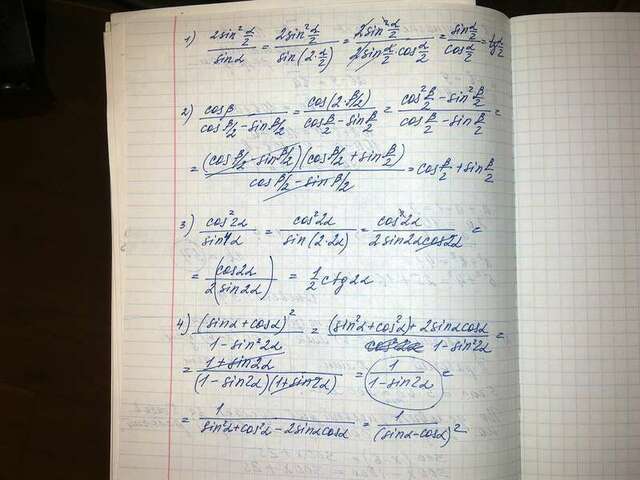 1) 2sin²α/2 / sinα = 2sin²α/2 / sin(2·α/2) = 2sin²α/2 / 2sinα/2·cosα/2 = sinα/2 / cosα/2 = tgα/2
2) cosβ / cosβ/2 − sinβ/2 = cos(2·β/2) / cosβ/2 − sinβ/2 = cos²β/2 − sin²β/2 / cosβ/2 − sinβ/2 =
= (cosβ/2 − sinβ/2)(cosβ/2 + sinβ/2) / cosβ/2 − sinβ/2 = cosβ/2 + sinβ/2
3) cos²2α / sin4α = cos²2α / sin(2·2α) = cos²2α / 2sin2αcos2α =
= (cos2α / 2(sin2α) = 1/2 ctg2α
4) (sinα + cosα)² / 1 − sin²2α = (sin²α + cos²α) + 2sinαcosα / 1 − sin²2α =
= 1 + sin2α / (1 − sin2α)(1 + sin2α) = 1 / 1 − sin2α =
= 1 / sin²α + cos²α − 2sinαcosα = 1 / (sinα − cosα)²